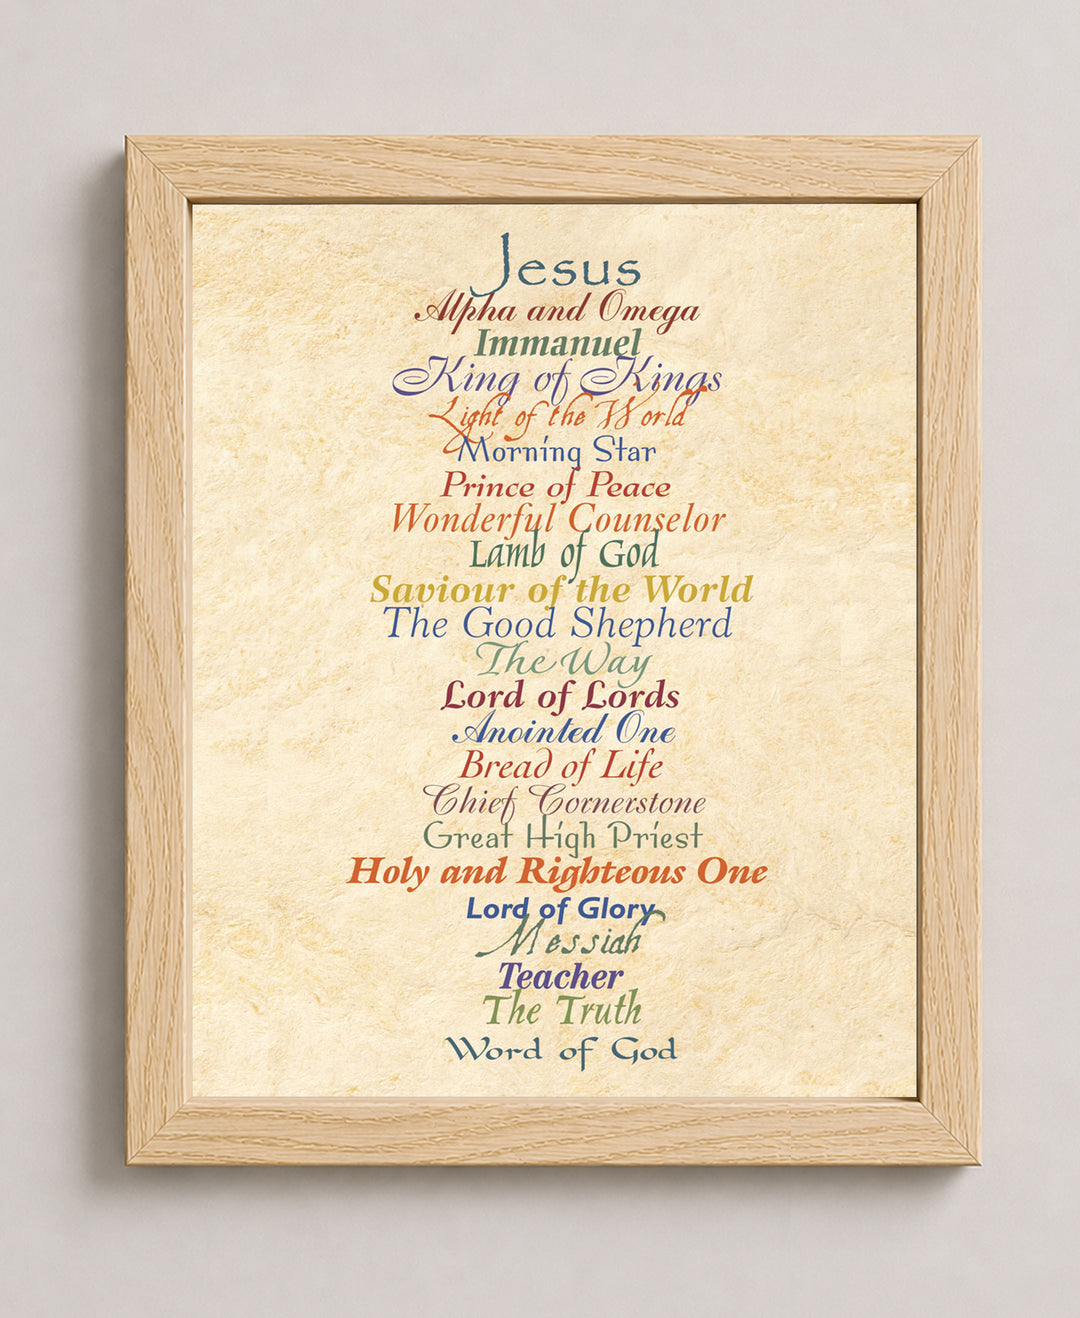 Jesus
Alpha and Omega
Immanuel
King of Kings
Light of the World
Morning Star
Prince of Peace
Wonderful Counselor
Lamb of God
Saviour of the World
The Good Shepherd
The Way
Lord of Lords
Anointed One
Bread of Life
Chief Cornerstone
Great High Priest
Holy and Righteous One
Lord of Glory
Messiah
Teacher
The Truth
Word of God